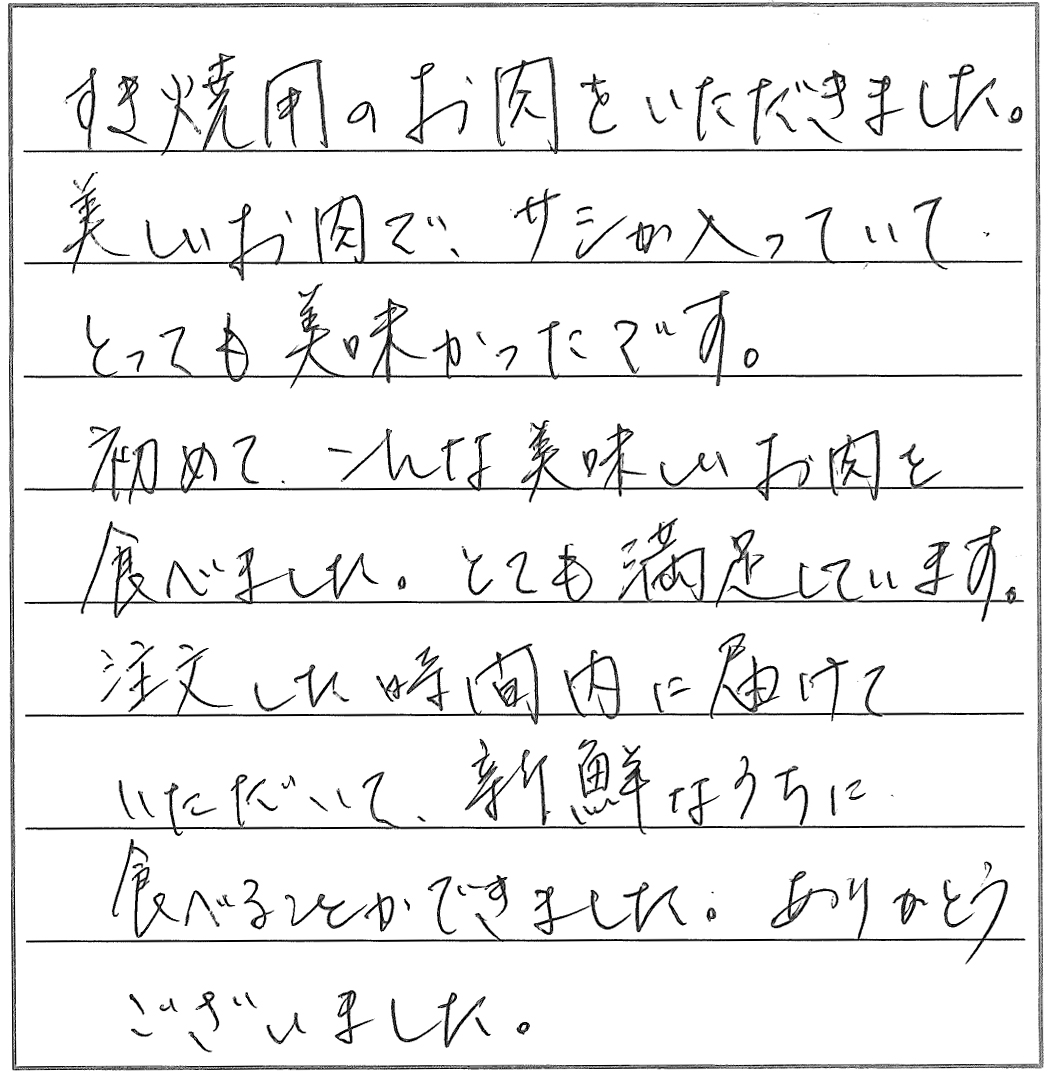 すき焼用のお肉をいただきました。
美しいお肉で、サシが入っていて
とっても美味かったです。
初めて、こんな美味しいお肉を
食べました。とても満足しています。
注文した時間内に届けて
いただいて、新鮮なうちに
食べることができました。ありがとう
ございました。